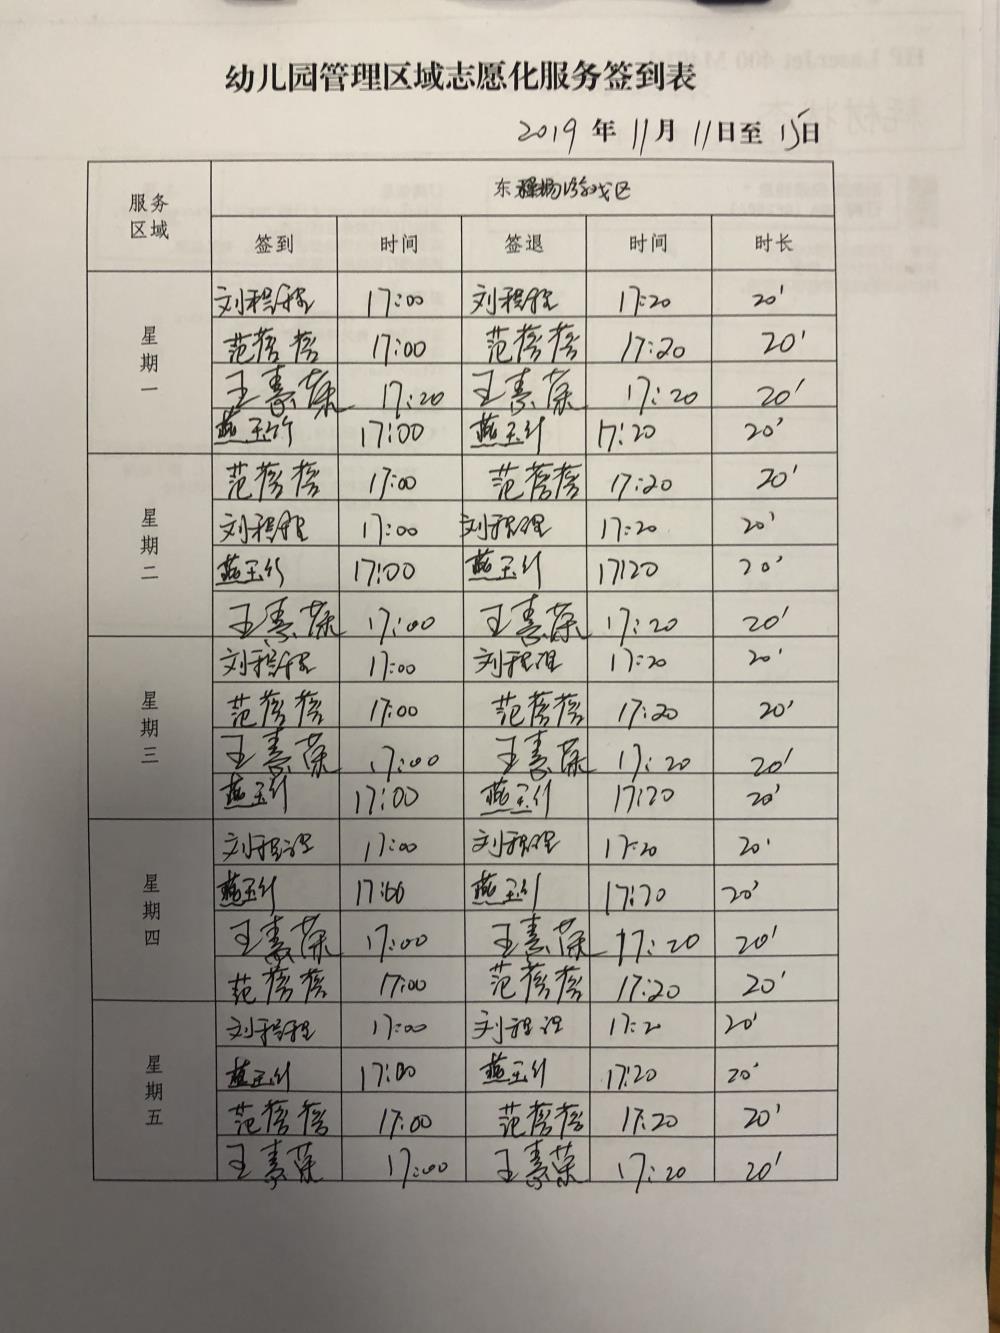 幼儿园管理区域志愿化服务签到表
2019 年 11 月 11 日至 15 日
服务区域 东 操场游戏区
签到 时间 签退 时间 时长
星期一
刘 17:00 刘 17:20 20'
范蓉蓉 17:00 范蓉蓉 17:20 20'
王素荣 17:20 王素荣 17:20 20'
燕玉竹 17:00 燕玉竹 17:20 20'
星期二
范蓉蓉 17:00 范蓉蓉 17:20 20'
刘 17:00 刘 17:20 20'
燕玉竹 17:00 燕玉竹 17:20 20'
王素荣 17:00 王素荣 17:20 20'
星期三
刘 17:00 刘 17:20 20'
范蓉蓉 17:00 范蓉蓉 17:20 20'
王素荣 17:00 王素荣 17:20 20'
燕玉竹 17:00 燕玉竹 17:20 20'
星期四
刘 17:00 刘 17:20 20'
燕玉竹 17:00 燕玉竹 17:20 20'
王素荣 17:00 王素荣 17:20 20'
范蓉蓉 17:00 范蓉蓉 17:20 20'
星期五
刘 17:00 刘 17:20 20'
燕玉竹 17:00 燕玉竹 17:20 20'
范蓉蓉 17:00 范蓉蓉 17:20 20'
王素荣 17:00 王素荣 17:20 20'